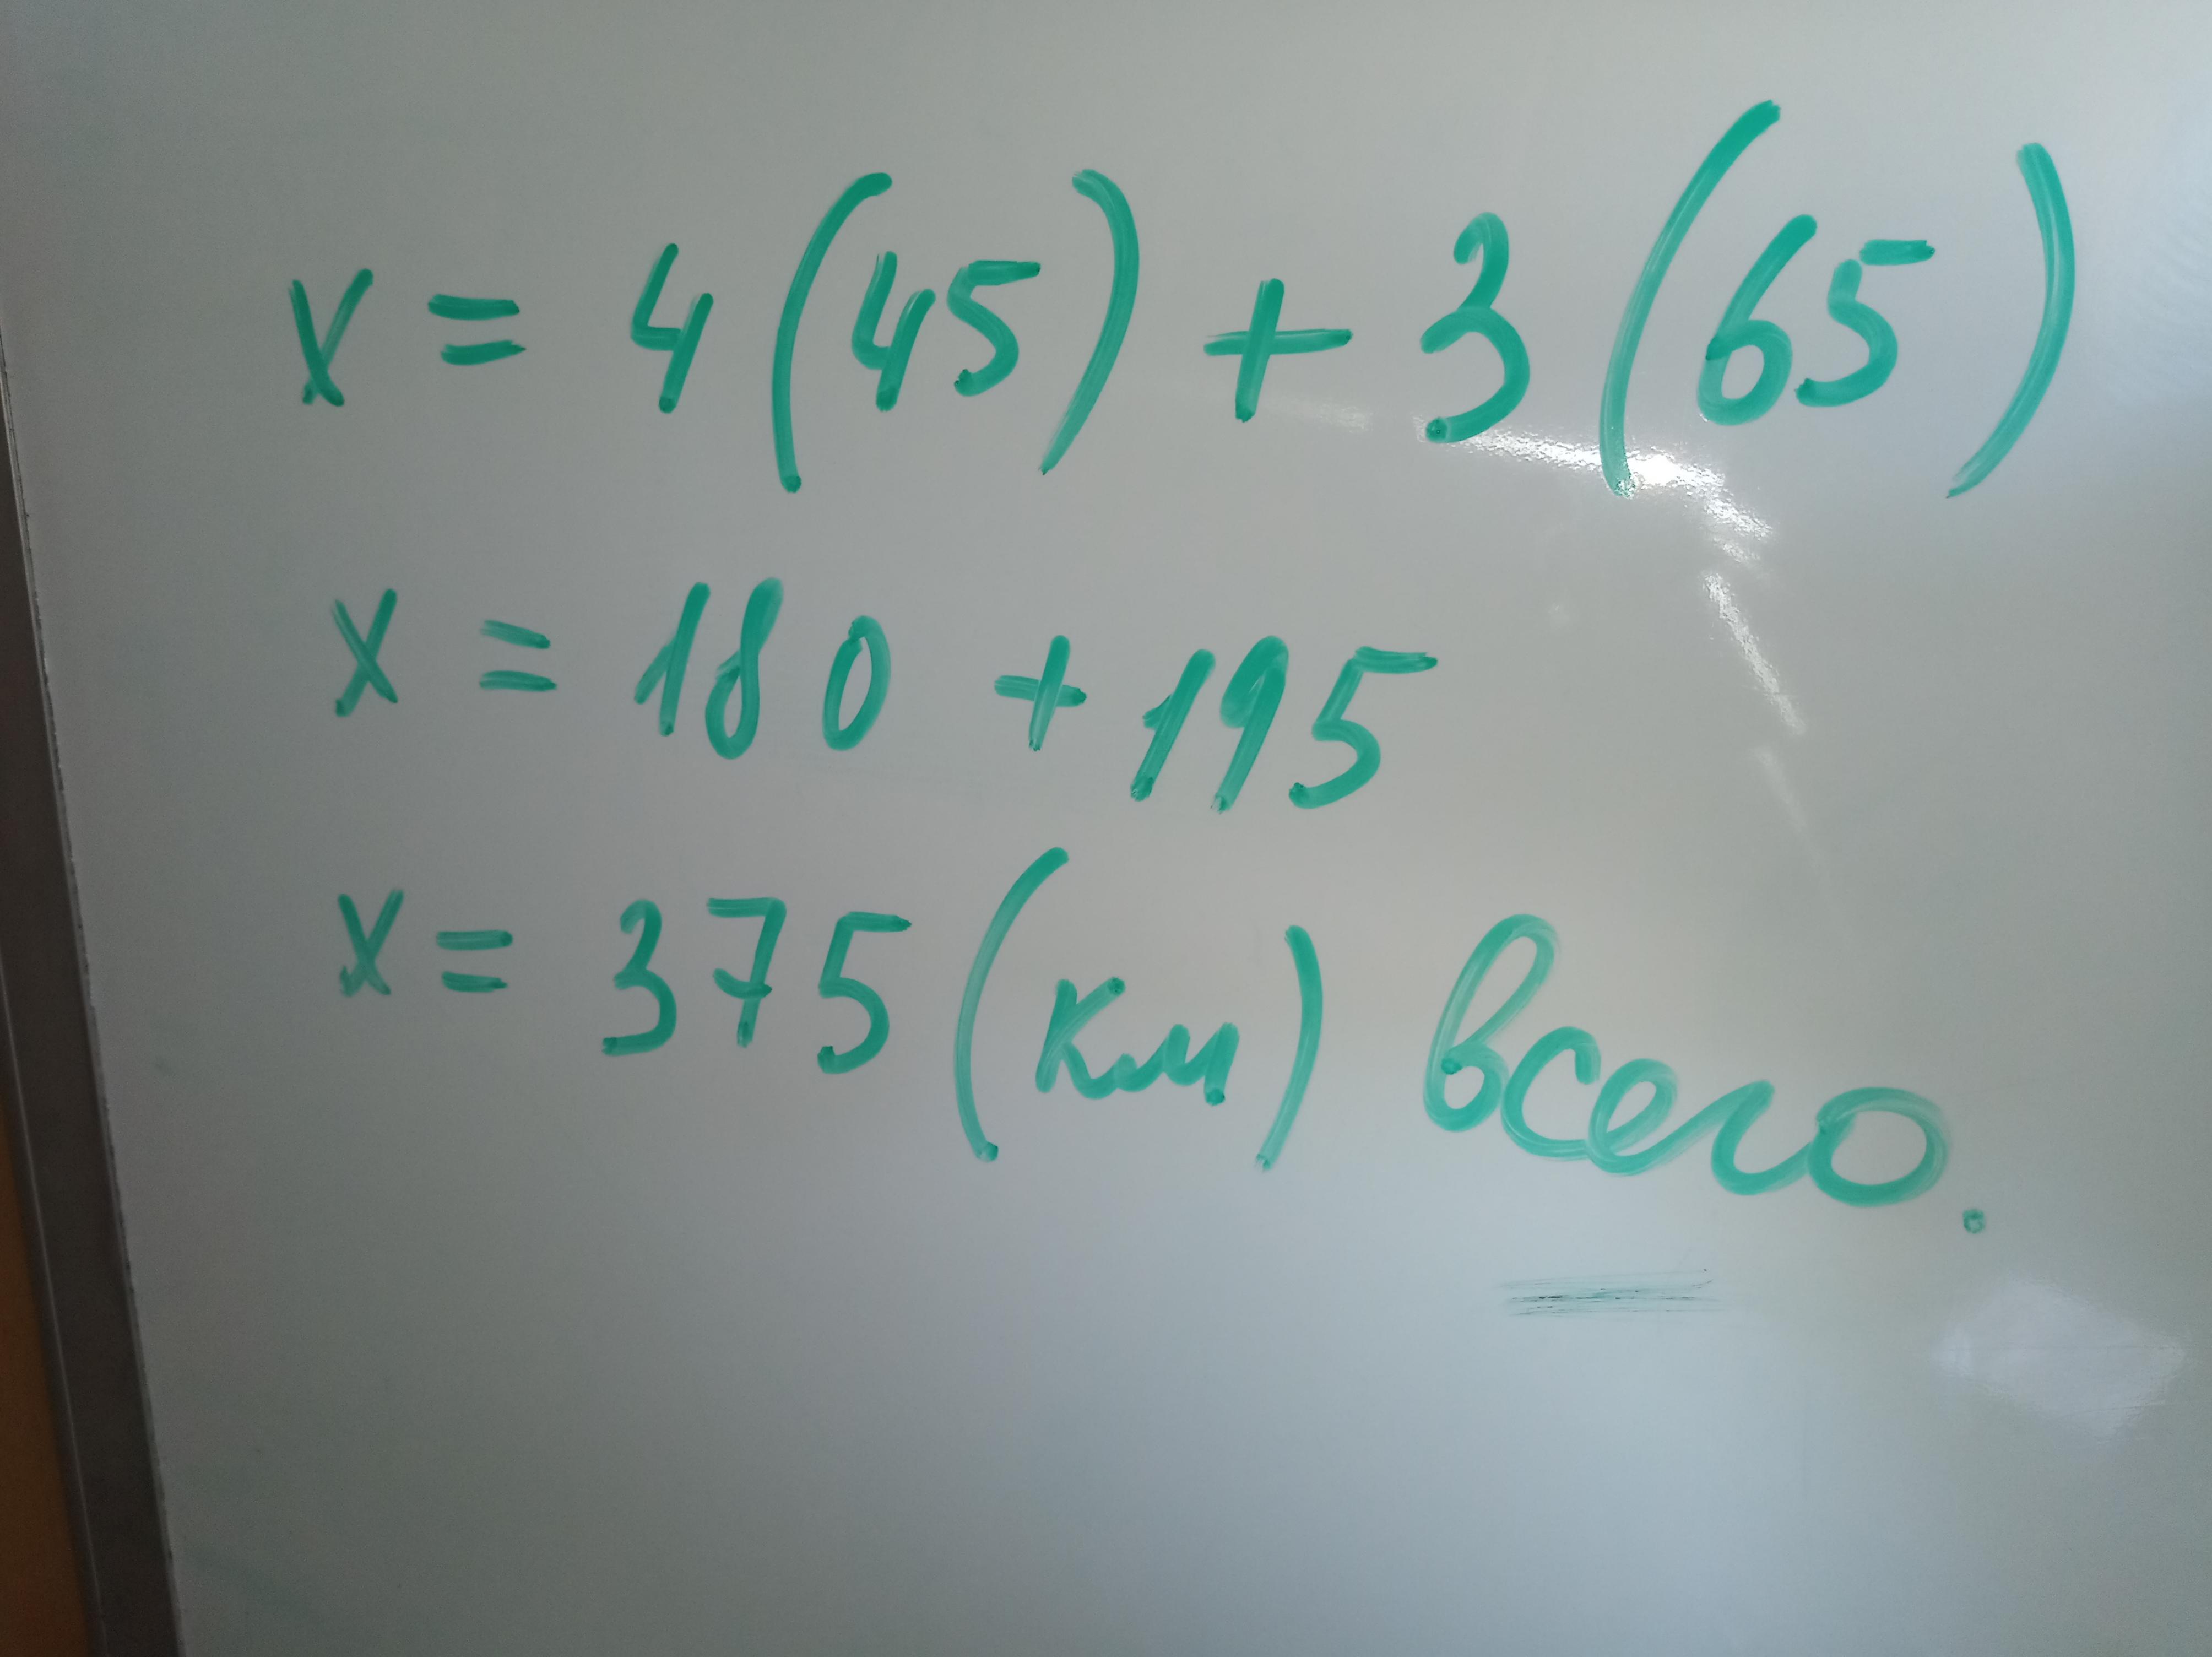 x = 4 (45) + 3 (65)
x = 180 + 195
x = 375 (км) всего.